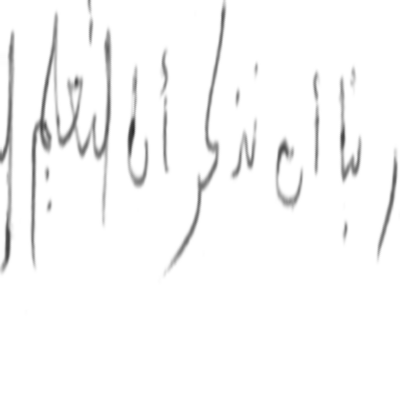 ر بنا أن نذكر أن التعليم